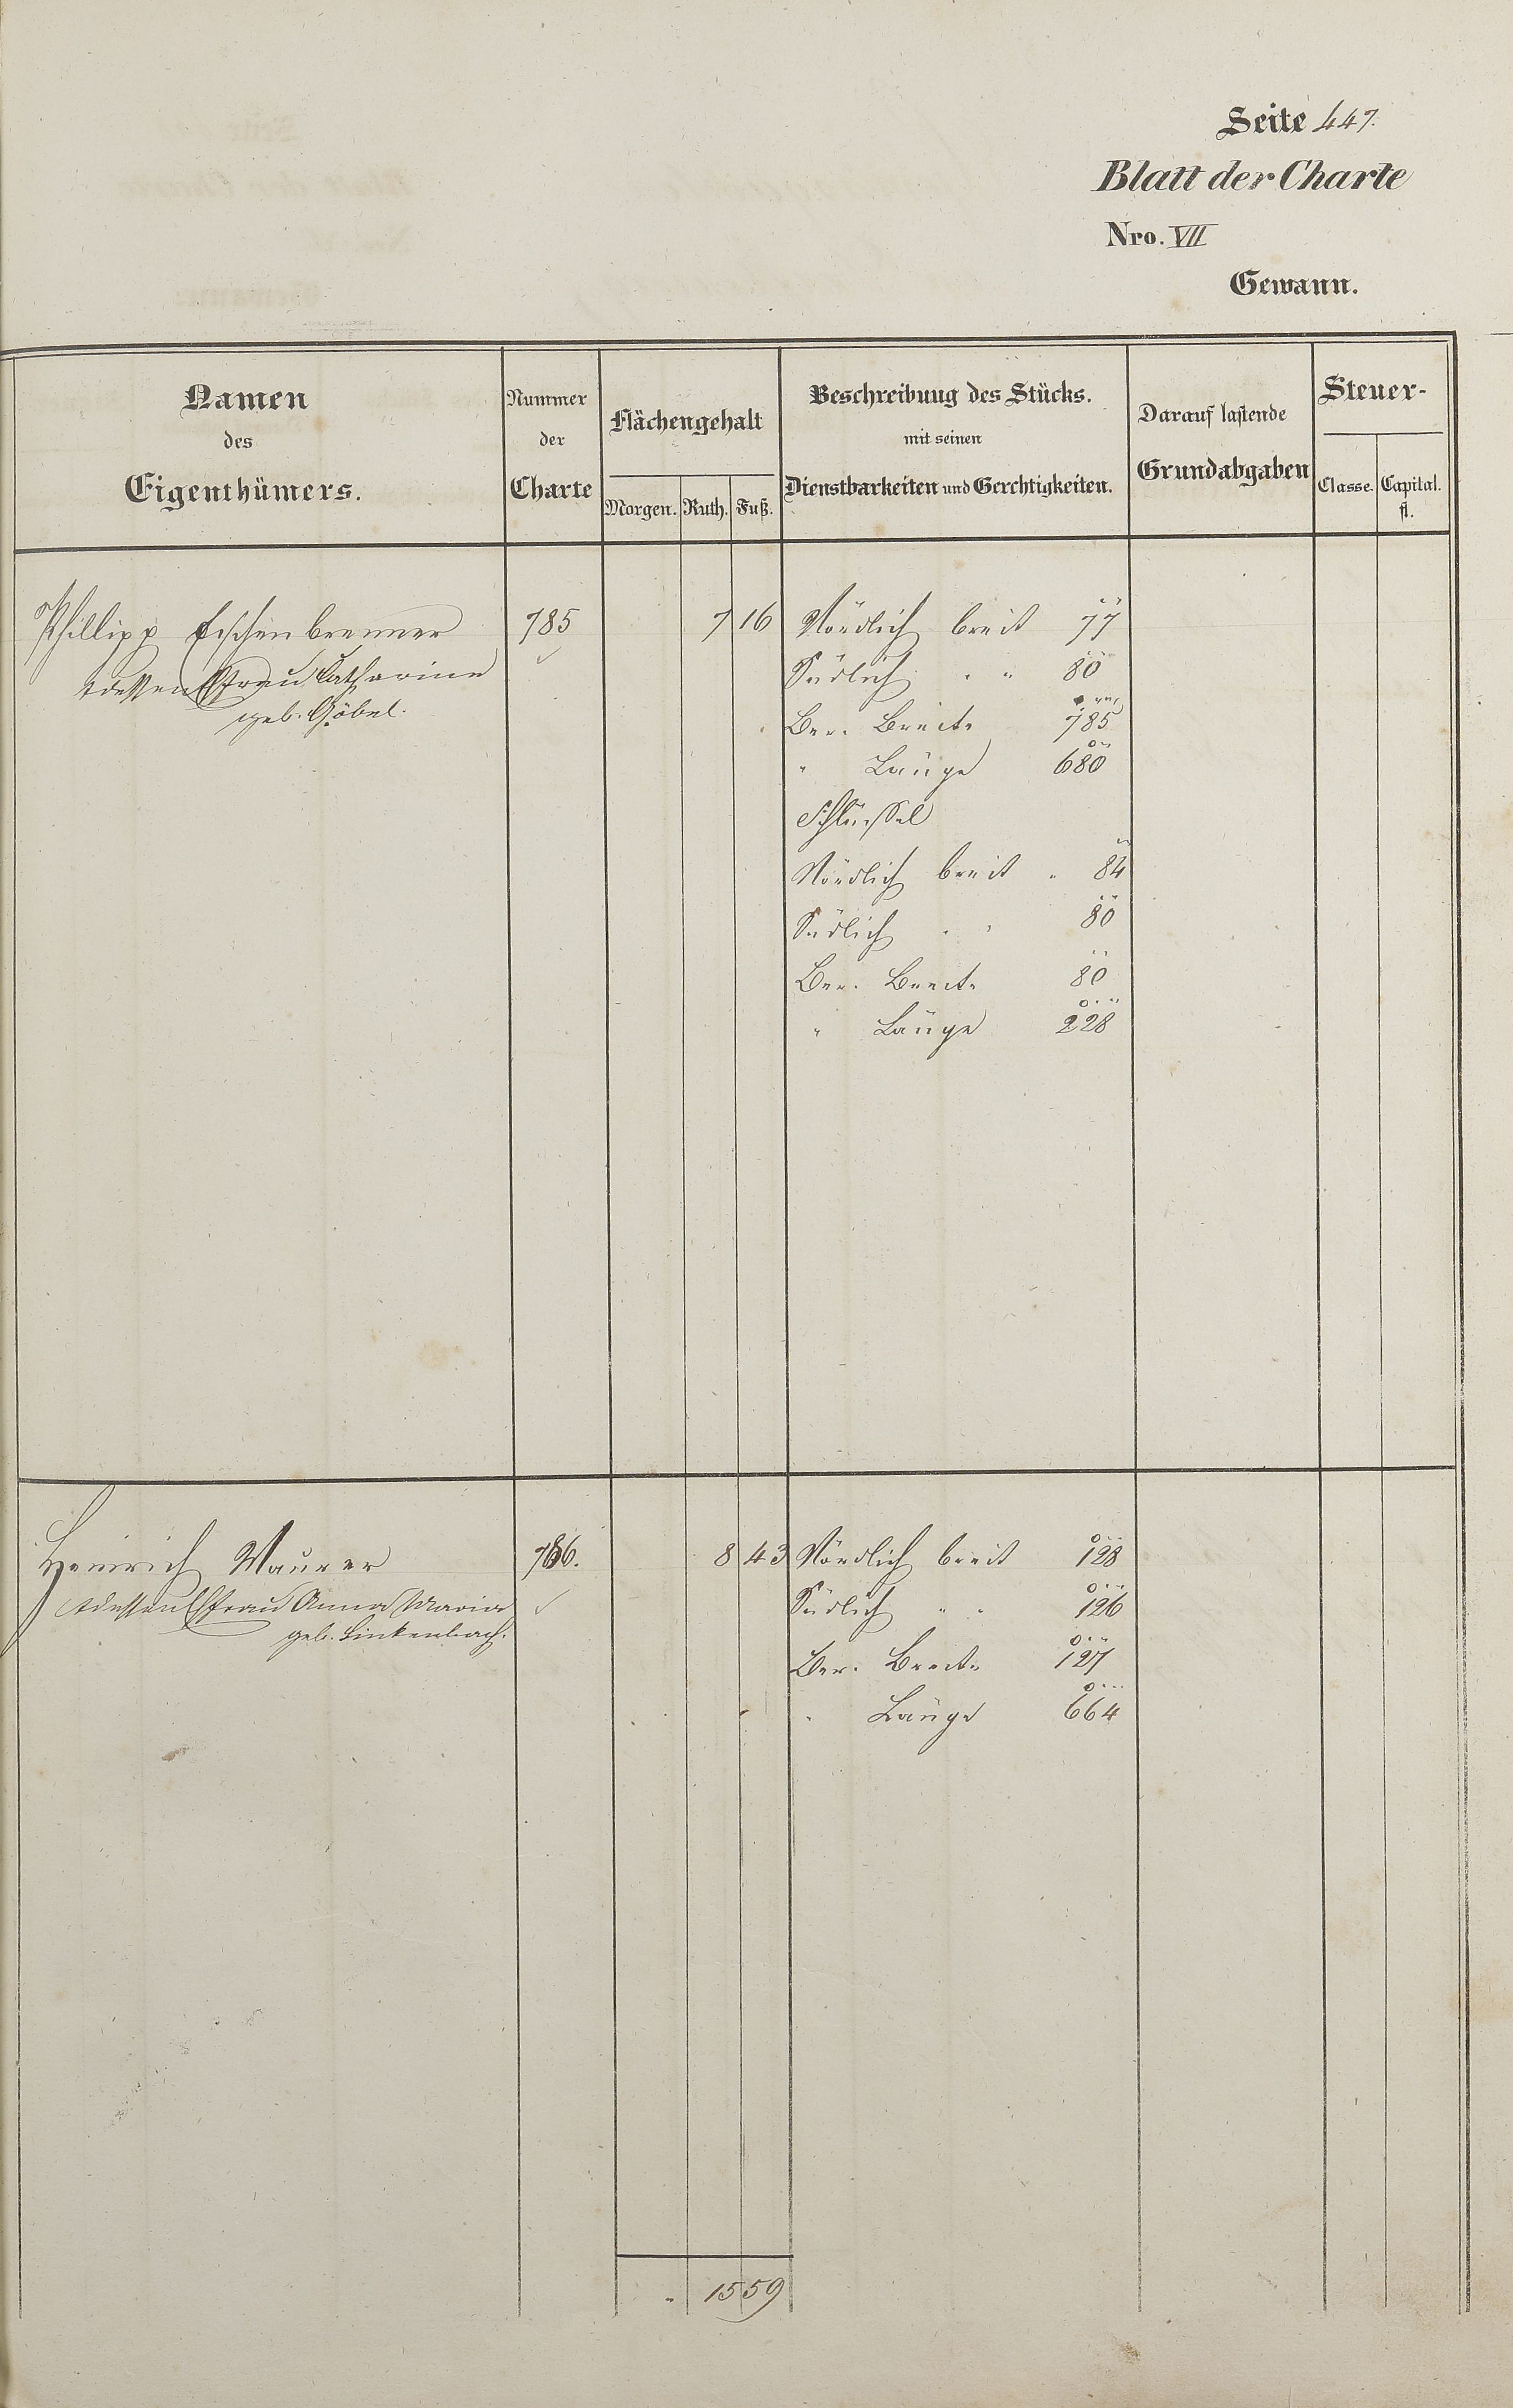 Seite 447.
Blatt der Charte
Nro. VII
Gewann.
Namen des Eigenthümers.
Nummer der Charte
Flächengehalt
Morgen. Ruth. Fuß.
Beschreibung des Stücks.
mit seinen
Dienstbarkeiten und Gerchtigkeiten.
Darauf lastende
Grundabgaben
Steuer-
Classe. Capital.
fl.
Phillipp Eschenbrenner 785 7 16 Nördlich breit 77
dessen Frau Catharine Südlich " " 80
geb. Göbel. Ber. Breite 785
" Länge 680
Schlüssel
Nördlich breit " 84
Südlich " " 80
Ber. Breite 80
" Länge 228
Heinrich Maurer 786. 8 43 Nördlich breit 128
dessen Frau Anna Maria Südlich " " 126
geb. Linkenbach. Ber. Breite 127
" Länge 664
" 15 59